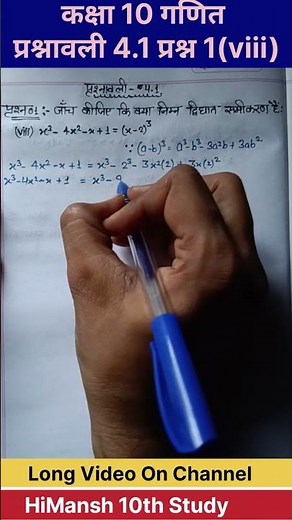 कक्षा 10 गणित
प्रश्नावली 4.1 प्रश्न 1(viii)
प्रश्नावली - 4.1
प्रश्न1:- जाँच कीजिए कि क्या निम्न द्विघात समीकरण है:
(viii) x³ - 4x² - x + 1 = (x - 2)³
∵ (a-b)³ = a³ - b³ - 3a²b + 3ab²
x³ - 4x² - x + 1 = x³ - 2³ - 3x²(2) + 3x(2)²
x³ - 4x² - x + 1 = x³ -
Long Video On Channel
HiMansh 10th Study